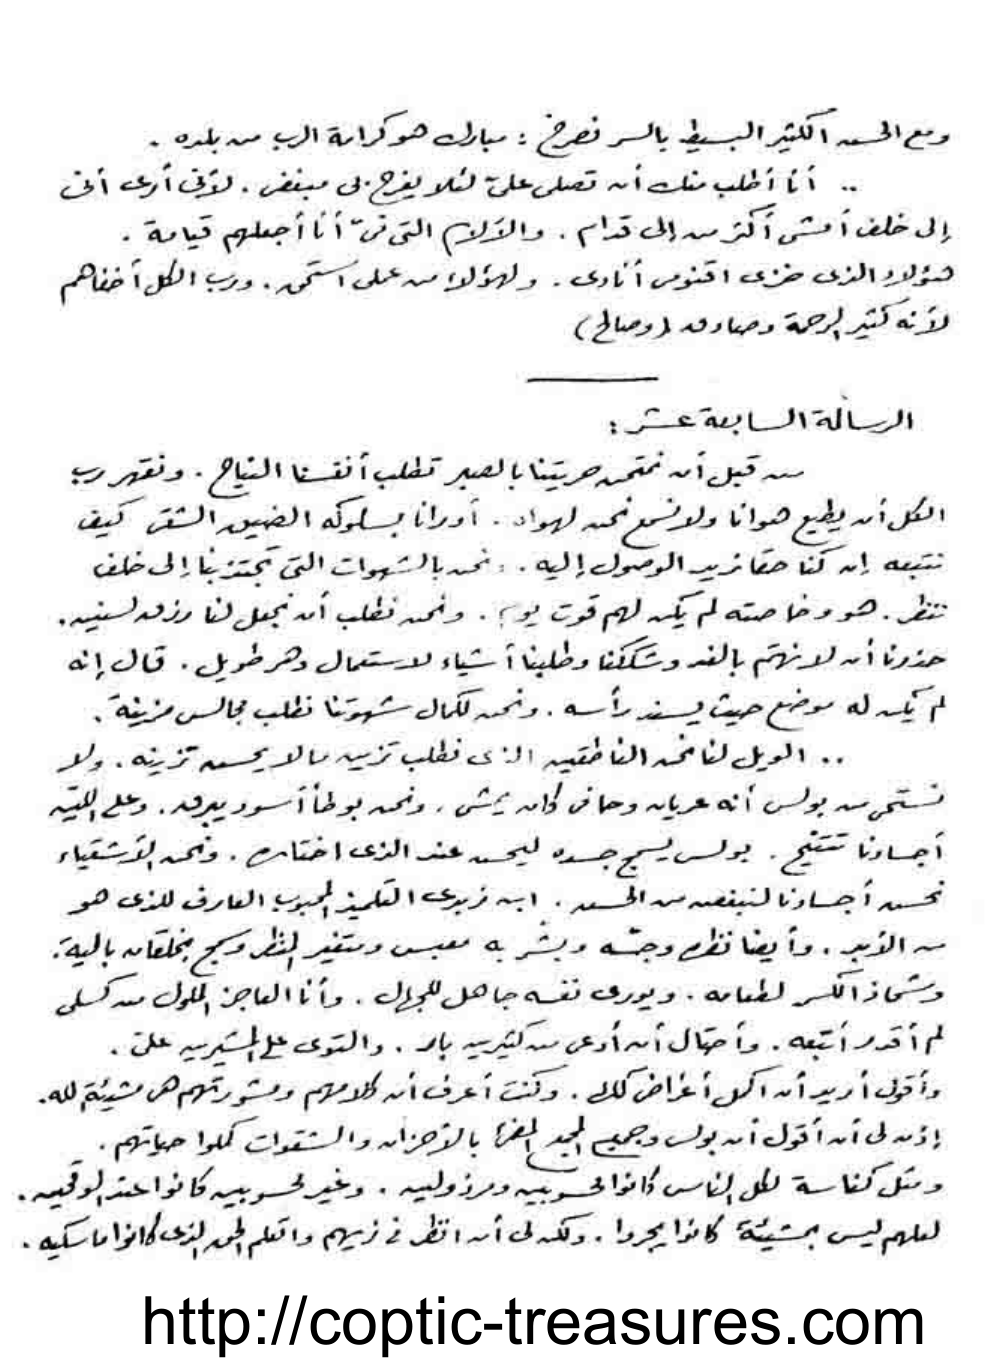 ومع الحسن الكثير البسيط بالسر نصرخ : مبارك هو كرامة الرب من بلده .
.. أنا أطلب منك أن تصلى علىّ لئلا يفرح بى مبغض . لأنى أرى أنى
إلى خلف أمشى أكثر من إلى قدام . والآلام التى فىّ أنا أجعلهم قيامة .
هؤلاء الذى ضدى اقنوم أنادى . ولهؤلاء من عملى استحى . ورب الكل أخفاهم
لأنه كثير الرحمة وصادق (وصالح)
الرسالة السابعة عشر :
من قبل أن نمتحن حريتنا بالصبر تطلب أنفسنا النياح . ونقهر رب
الكل أن يطيع هوانا ولا نسمع نحن لهواه . أورانا بسلوكه الضيق الشقى كيف
نتبعه إن كنا حقا نريد الوصول إليه . ونحن بالشهوات التى تجتذبنا إلى خلف
ننظر . هو وخاصته لم يكن لهم قوت يوم . ونحن نطلب أن نجعل لنا رزق لسنين .
حذرنا أن لا نهتم بالغد وشككنا وطلبنا أشياء لاستعمال دهر طويل . قال إنه
لم يكن له موضع حيث يسند رأسه . ونحن لكمال شهوتنا نطلب مجالس مزينة .
.. الويل لنا نحن الناطقين الذى نطلب تزيين ما لا يحسن تزينه . ولا
نستحى من بولس أنه عريان وحافى كان يمشى . ونحن بوطأ أسود يبرق . وعلى اللين
أجسادنا تتنيح . بولس يسمج جسده ليحسن عند الذى اختاره . ونحن الأشقياء
نحسن أجسادنا لننقص من الحسن . ابن زبدى التلميذ المحبوب العارف للذى هو
من الأبد . وأيضا نظره وجسّه وبشّر به معبس ومتغير النظر وسمج بخلقان بالية .
وشحاذ الكسر لطعامه . ويورى نفسه جاهل للجهال . وأنا العاجز الملول من كسلى
لم أقدر أتبعه . وأحتال أن أدعى من كثيرين بار . والتوى على المشيرين علىّ .
وأقول أريد أن اكمل أغراض كللى . وكنت أعرف أن كلامهم ومشورتهم هى مشيئة الله .
إذن لى أن أقول أن بولس وجميع المجمع المضئ بالأحزان والشقوات كملوا حياتهم .
ومثل كناسة لكل الناس كانوا محسوبين ومرذولين . وغير محسوبين كانوا عند الوقحين .
لعلهم ليس بمشيئة كانوا يجروا . ولكن لى أن انظر فى زيهم واتعلم الحق الذى كانوا ماسكين .
http://coptic-treasures.com